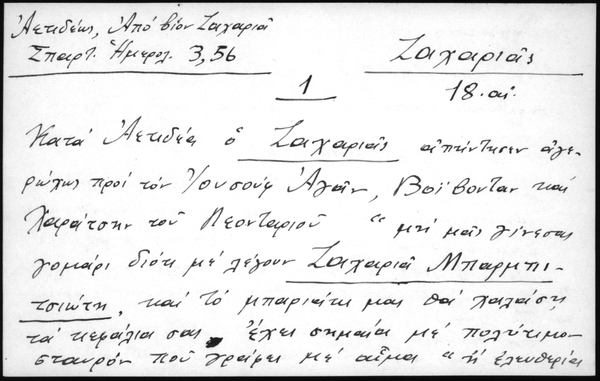 Ἀετιδέως, Ἀπό βίον Ζαχαριᾶ
Σπαρτ. Ἡμερολ. 3,56
Ζαχαριᾶς
18. αἰ.
1
Κατά Ἀετιδέα ὁ Ζαχαριᾶς ἀπήντησεν ἀγε-
ρώχως πρός τόν Ἰουσούφ Ἀγᾶν, Βοϊβονταν καί
Χαράτσην τοῦ Λεονταριοῦ "μή μᾶς γίνεσαι
γομάρι διότι μέ λέγουν Ζαχαριᾶ Μπαρμπι-
τσιώτη, καί τό μπαριάκι μας θά χαλάση
τά κεφάλια σας. Ἔχει σημαία μέ πολύτιμο-
σταυρόν πού γράφει μέ αἷμα "ἤ ἐλευθερία